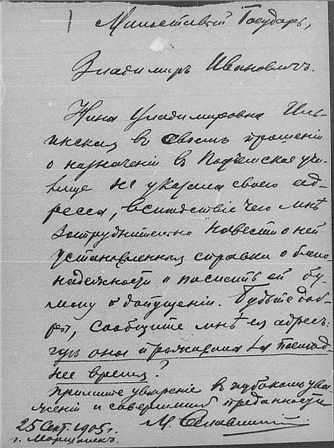 Милостивый Государь,
Владимиръ Ивановичъ.
Нина Владимировна
въ своемъ прошеніи
о назначеніи въ учи-
лище не указала своего ад-
ресса, вслѣдствіе чего мнѣ
затруднительно навести о ней
установленныя справки о благо-
надежности и послать ей бу-
магу о допущеніи. Будьте доб-
ры, сообщите мнѣ ея адресъ
гдѣ она проживала въ послѣд-
нее время?
Примите увѣреніе въ глубокомъ ува-
женіи и совершенной преданности
25 Сент. 1905 г. М.
г. Моршанскъ.